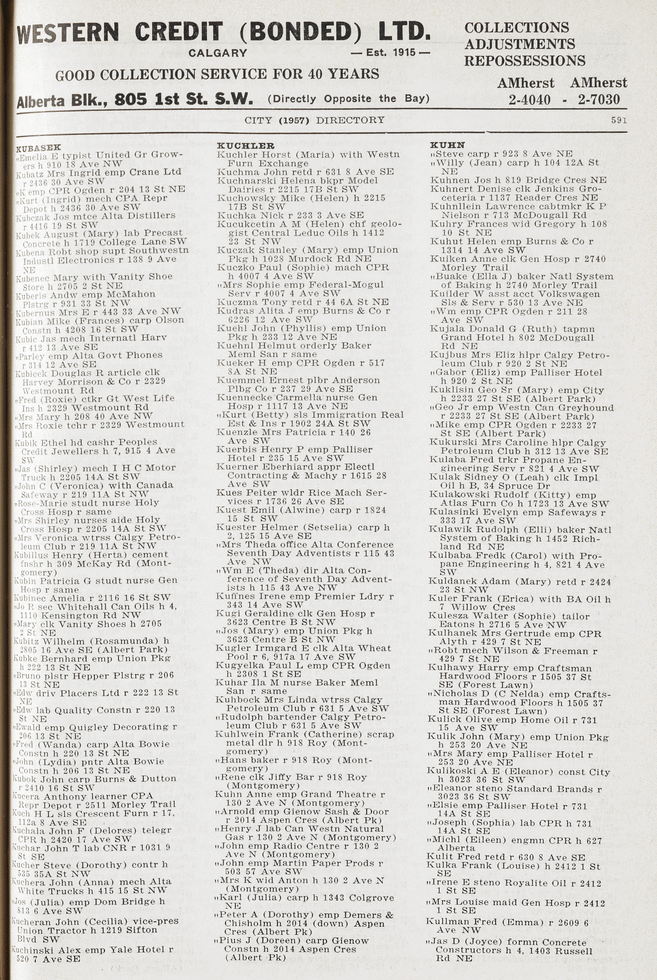 WESTERN CREDIT (BONDED) LTD.
CALGARY — Est. 1915 —
GOOD COLLECTION SERVICE FOR 40 YEARS
Alberta Blk., 805 1st St. S.W. (Directly Opposite the Bay)
COLLECTIONS
ADJUSTMENTS
REPOSSESSIONS
AMherst AMherst
2-4040 - 2-7030
CITY (1957) DIRECTORY 591
KUBASEK
"Emelia E typist United Gr Grow-
ers h 910 18 Ave NW
Kubatz Mrs Ingrid emp Crane Ltd
r 2436 30 Ave SW
"K emp CPR Ogden r 204 13 St NE
"Kurt (Ingrid) mech CPA Repr
Depot r 2436 30 Ave SW
Kubczak Jos mtce Alta Distillers
r 4416 19 St SW
Kubek August (Mary) lab Precast
Concrete h 1719 College Lane SW
Kubena Robt shop supt Southwestn
Industl Electronics r 138 9 Ave
NE
Kubenec Mary with Vanity Shoe
Store h 2705 2 St NE
Kuberis Andw emp McMahon
Plstrg r 931 33 St NW
Kubernus Mrs E r 443 33 Ave NW
Kubian Mike (Frances) carp Olson
Constn h 4208 16 St SW
Kubic Jas mech Internatl Harv
r 412 13 Ave SE
"Parley emp Alta Govt Phones
r 314 12 Ave SE
Kubicek Douglas R article clk
Harvey Morrison & Co r 2329
Westmount Rd
"Fred (Roxie) ctkr Gt West Life
Ins h 2329 Westmount Rd
"Mrs Mary h 208 40 Ave NW
"Mrs Roxie tchr r 2329 Westmount
Rd
Kubik Ethel hd cashr Peoples
Credit Jewellers h 7, 915 4 Ave
SW
"Jas (Shirley) mech I H C Motor
Truck h 2205 14A St SW
"John C (Veronica) with Canada
Safeway r 219 11A St NW
"Rose-Marie studt nurse Holy
Cross Hosp r same
"Mrs Shirley nurses aide Holy
Cross Hosp r 2205 14A St SW
"Mrs Veronica wtrss Calgy Petro-
leum Club r 219 11A St NW
Kubillus Henry (Herta) cement
fnshr h 309 McKay Rd (Mont-
gomery)
Kubin Patricia G studt nurse Gen
Hosp r same
Kubinec Amelia r 2116 16 St SW
"Jo R sec Whitehall Can Oils h 4,
1110 Kensington Rd NW
"Mary clk Vanity Shoes h 2705
2 St NE
Kubitz Wilhelm (Rosamunda) h
2805 16 Ave SE (Albert Park)
Kubke Bernhard emp Union Pkg
h 222 13 St NE
"Bruno plstr Hepper Plstrg r 206
13 St NE
"Edw driv Placers Ltd r 222 13 St
NE
"Edw lab Quality Constn r 220 13
St NE
"Ewald emp Quigley Decorating r
206 13 St NE
"Fred (Wanda) carp Alta Bowie
Constn h 220 13 St NE
"John (Lydia) pntr Alta Bowie
Constn h 206 13 St NE
Kubok John carp Burns & Dutton
r 2410 16 St SW
Kucera Anthony learner CPA
Repr Depot r 2511 Morley Trail
Kuch H L sls Crescent Furn r 17,
112a 8 Ave SE
Kuchala John F (Delores) telegr
CPR h 2420 17 Ave SW
Kuchar John T lab CNR r 1031 9
St SE
Kucher Steve (Dorothy) contr h
535 35A St NW
Kuchera John (Anna) mech Alta
White Trucks h 415 15 St NW
"Jos (Julia) emp Dom Bridge h
813 6 Ave SW
Kucheran John (Cecilia) vice-pres
Union Tractor h 1219 Sifton
Blvd SW
Kuchinski Alex emp Yale Hotel r
520 7 Ave SE
KUCHLER
Kuchler Horst (Maria) with Westn
Furn Exchange
Kuchma John retd r 631 8 Ave SE
Kucharnarski Helena bkpr Model
Dairies r 2215 17B St SW
Kuchowsky Mike (Helen) h 2215
17B St SW
Kuchka Nick r 233 3 Ave SE
Kucukcetin A M (Helen) chf geolo-
gist Central Leduc Oils h 1412
23 St NW
Kuczak Stanley (Mary) emp Union
Pkg h 1028 Murdock Rd NE
Kuczko Paul (Sophie) mach CPR
h 4007 4 Ave SW
"Mrs Sophie emp Federal-Mogul
Serv r 4007 4 Ave SW
Kuczma Tony retd r 44 6A St NE
Kudras Alita J emp Burns & Co r
6226 12 Ave SW
Kuehl John (Phyllis) emp Union
Pkg h 233 12 Ave NE
Kuehnl Helmut orderly Baker
Meml San r same
Kueker H emp CPR Ogden r 517
8A St NE
Kuemmel Ernest plbr Anderson
Plbg Co r 237 29 Ave SE
Kuennecke Carmella nurse Gen
Hosp r 1117 13 Ave NE
"Kurt (Betty) sls Immigration Real
Est & Ins r 1902 24A St SW
Kuenzle Mrs Patricia r 140 26
Ave SW
Kuerbis Henry P emp Palliser
Hotel r 235 15 Ave SW
Kuerner Eberhiard appr Electl
Contracting & Machy r 1615 28
Ave SW
Kues Peiter wldr Rice Mach Ser-
vices r 1736 26 Ave SE
Kuest Emil (Alwine) carp r 1824
15 St SW
Kuester Helmer (Setselia) carp h
2, 125 15 Ave SE
"Mrs Theda office Alta Conference
Seventh Day Adventists r 115 43
Ave NW
"Wm E (Theda) dir Alta Con-
ference of Seventh Day Advent-
ists h 115 43 Ave NW
Kuffnes Irene emp Premier Ldry r
343 14 Ave SW
Kugi Geraldine clk Gen Hosp r
3623 Centre B St NW
"Jos (Mary) emp Union Pkg h
3623 Centre B St NW
Kugler Irmgard E clk Alta Wheat
Pool r 6, 917a 17 Ave SW
Kugyelka Paul L emp CPR Ogden
h 2308 1 St SE
Kuhar Ila M nurse Baker Meml
San r same
Kuhbock Mrs Linda wtrss Calgy
Petroleum Club r 631 5 Ave SW
"Rudolph bartender Calgy Petro-
leum Club r 631 5 Ave SW
Kuhlwein Frank (Catherine) scrap
metal dlr h 918 Roy (Mont-
gomery)
"Hans baker r 918 Roy (Mont-
gomery)
"Rene clk Jiffy Bar r 918 Roy
(Montgomery)
Kuhn Anne emp Grand Theatre r
130 2 Ave N (Montgomery)
"Arnold emp Glenow Sash & Door
r 2014 Aspen Cres (Albert Pk)
"Henry J lab Can Westn Natural
Gas r 130 2 Ave N (Montgomery)
"John emp Radio Centre r 130 2
Ave N (Montgomery)
"John emp Martin Paper Prods r
503 57 Ave SW
"Mrs K wid Anton h 130 2 Ave N
(Montgomery)
"Karl (Julia) carp h 1343 Colgrove
NE
"Peter A (Dorothy) emp Demers &
Chisholm h 2014 (down) Aspen
Cres (Albert Pk)
"Pius J (Doreen) carp Glenow
Constn h 2014 Aspen Cres
(Albert Pk)
KUHN
"Steve carp r 923 8 Ave NE
"Willy (Jean) carp h 104 12A St
NE
Kuhnen Jos h 819 Bridge Cres NE
Kuhnert Denise clk Jenkins Gro-
ceteria r 1137 Reader Cres NE
Kuhnlein Lawrence cabtmkr K P
Nielson r 713 McDougall Rd
Kuhry Frances wid Gregory h 108
10 St NE
Kuhut Helen emp Burns & Co r
1314 14 Ave SW
Kuiken Anne clk Gen Hosp r 2740
Morley Trail
"Buake (Ella J) baker Natl System
of Baking h 2740 Morley Trail
Kuilder W asst acct Volkswagen
Sls & Serv r 530 13 Ave NE
"Wm emp CPR Ogden r 211 28
Ave SW
Kujala Donald G (Ruth) tapmn
Grand Hotel h 802 McDougall
Rd NE
Kujbus Mrs Eliz hlpr Calgy Petro-
leum Club r 920 2 St NE
"Gabor (Eliz) emp Palliser Hotel
h 920 2 St NE
Kuklisin Geo Sr (Mary) emp City
h 2233 27 St SE (Albert Park)
"Geo Jr emp Westn Can Greyhound
r 2233 27 St SE (Albert Park)
"Mike emp CPR Ogden r 2233 27
St SE (Albert Park)
Kukurski Mrs Caroline hlpr Calgy
Petroleum Club h 312 13 Ave SE
Kulaba Fred trkr Propane En-
gineering Serv r 821 4 Ave SW
Kulak Sidney O (Leah) clk Impl
Oil h B, 34 Spruce Dr
Kulakowski Rudolf (Kitty) emp
Atlas Furn Co h 1723 13 Ave SW
Kulasinki Evelyn emp Safeways r
333 17 Ave SW
Kulawik Rudolph (Elli) baker Natl
System of Baking h 1452 Rich-
land Rd NE
Kulbaba Fredk (Carol) with Pro-
pane Engineering h 4, 821 4 Ave
SW
Kuldanek Adam (Mary) retd r 2424
23 St NW
Kuler Frank (Erica) with BA Oil h
7 Willow Cres
Kulesza Walter (Sophie) tailor
Eatons h 2716 5 Ave NW
Kulhanek Mrs Gertrude emp CPR
Alyth r 429 7 St NE
"Robt mech Wilson & Freeman r
429 7 St NE
Kulhawy Harry emp Craftsman
Hardwood Floors r 1505 37 St
SE (Forest Lawn)
"Nicholas D (C Nelda) emp Crafts-
man Hardwood Floors h 1505 37
St SE (Forest Lawn)
Kulick Olive emp Home Oil r 731
15 Ave SW
Kulik John (Mary) emp Union Pkg
h 253 20 Ave NE
"Mrs Mary emp Palliser Hotel r
253 20 Ave NE
Kulikoski A E (Eleanor) const City
h 3023 36 St SW
"Eleanor steno Standard Brands r
3023 36 St SW
"Elsie emp Palliser Hotel r 731
14A St SE
"Joseph (Sophia) lab CPR h 731
14A St SE
"Michl (Eileen) engmn CPR h 627
Alberta
Kulit Fred retd r 630 8 Ave SE
Kulka Frank (Louise) h 2412 1 St
SE
"Irene E steno Royalite Oil r 2412
1 St SE
"Mrs Louise maid Gen Hosp r 2412
1 St SE
Kullman Fred (Emma) r 2609 6
Ave NW
"Jas D (Joyce) formn Concrete
Constructors h 4, 1403 Russell
Rd NE